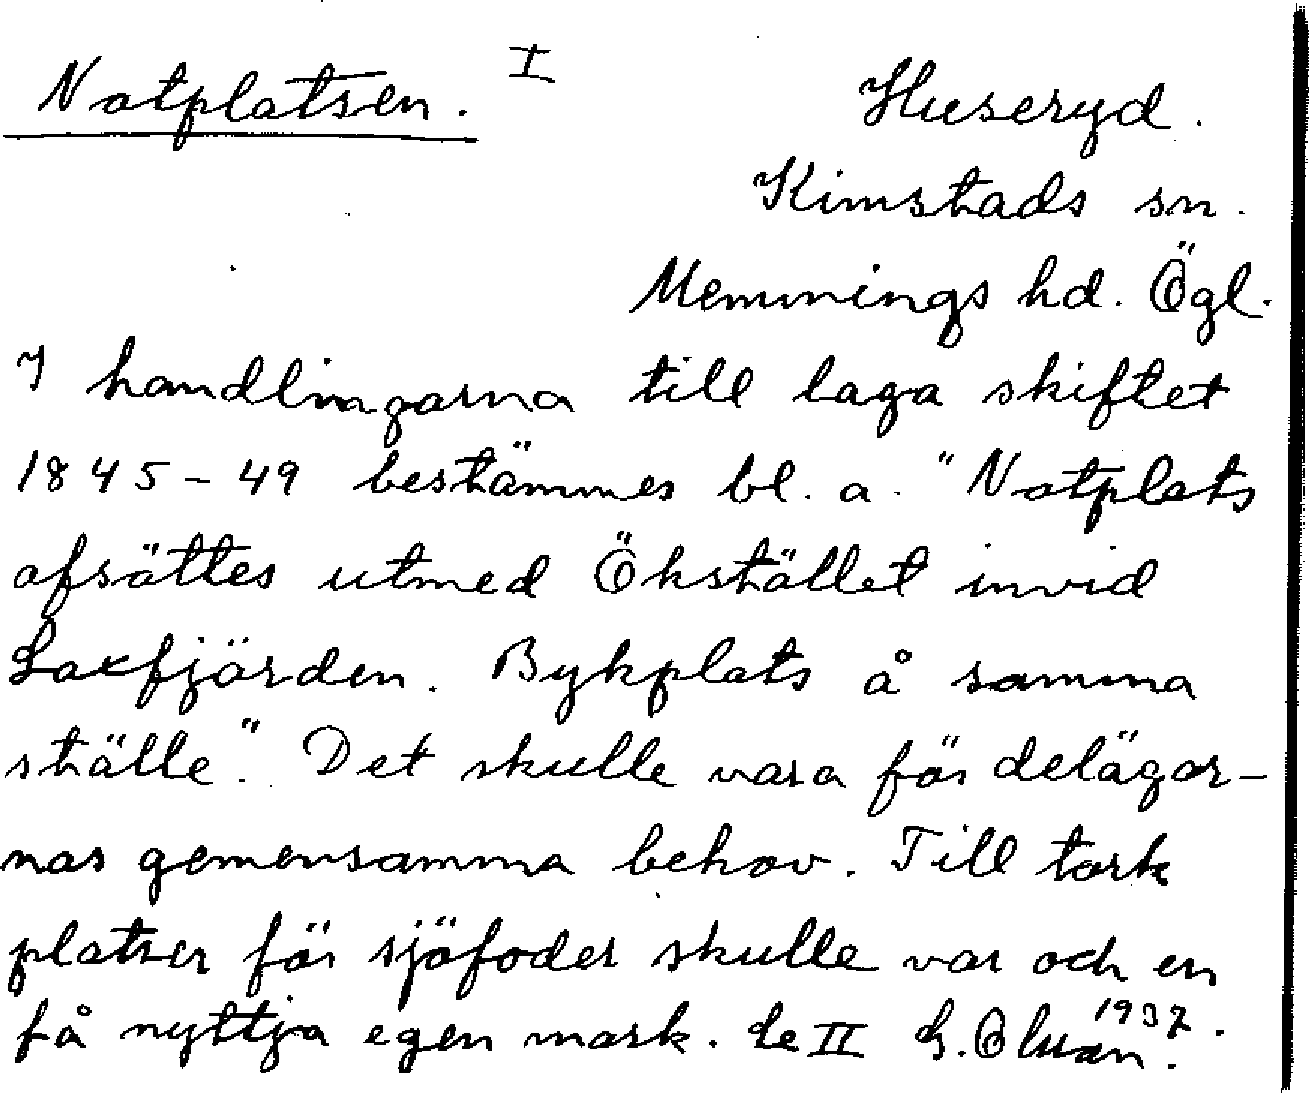 Notplatsen. I
Huseryd.
Kimstads sn.
Memmings hd. Ögl.
I handlingarna till laga skiftet
1845-49 bestämmes bl. a. "Notplats
afsättes utmed Ökstället invid
Laxfjärden. Bykplats å samma
ställe." Det skulle vara för delägar-
nas gemensamma behov. Till tork
platser för sjöfoder skulle var och en
få nyttja egen mark. Se II
1937.